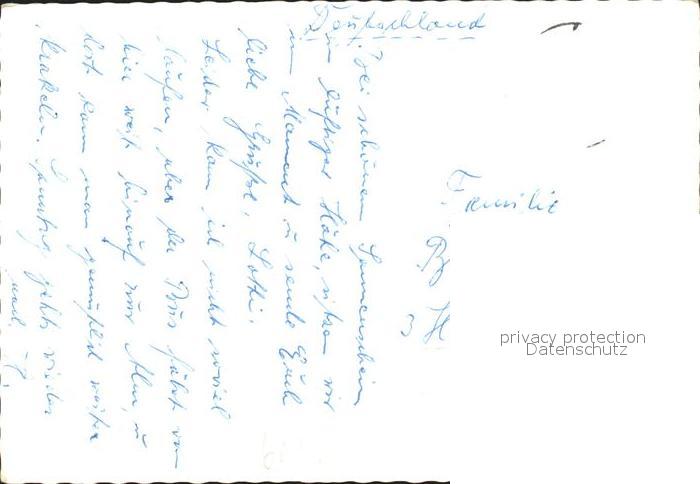 Deutschland
Bei schönem Sonnenschein
in luftiger Höhe, sitzen wir
im Moment u sende Euch
liebe Grüße, Lotti.
Leider kam ich nicht soviel
laufen, aber der Bus fährt von
hier weit hinauf zur Alm, u
dort kann man gemütlich weiter
krakeln. Sonntag geht's wieder
Familie
privacy protection
Datenschutz